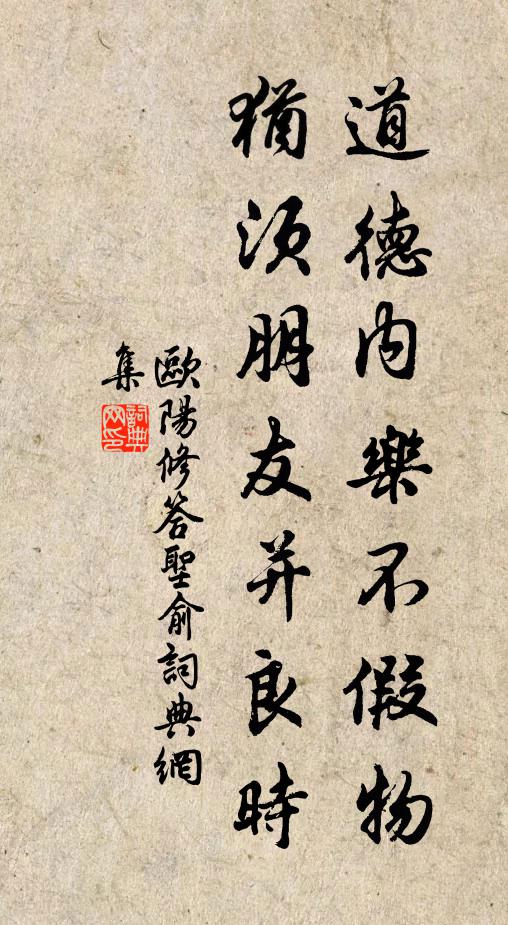 道德内樂不假物
猶須朋友并良時
歐陽修答聖俞詞典網
集
詞典
网印